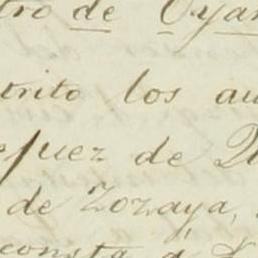 tro de Oyar
trito los au
juez de
de Zozaya,
consta á